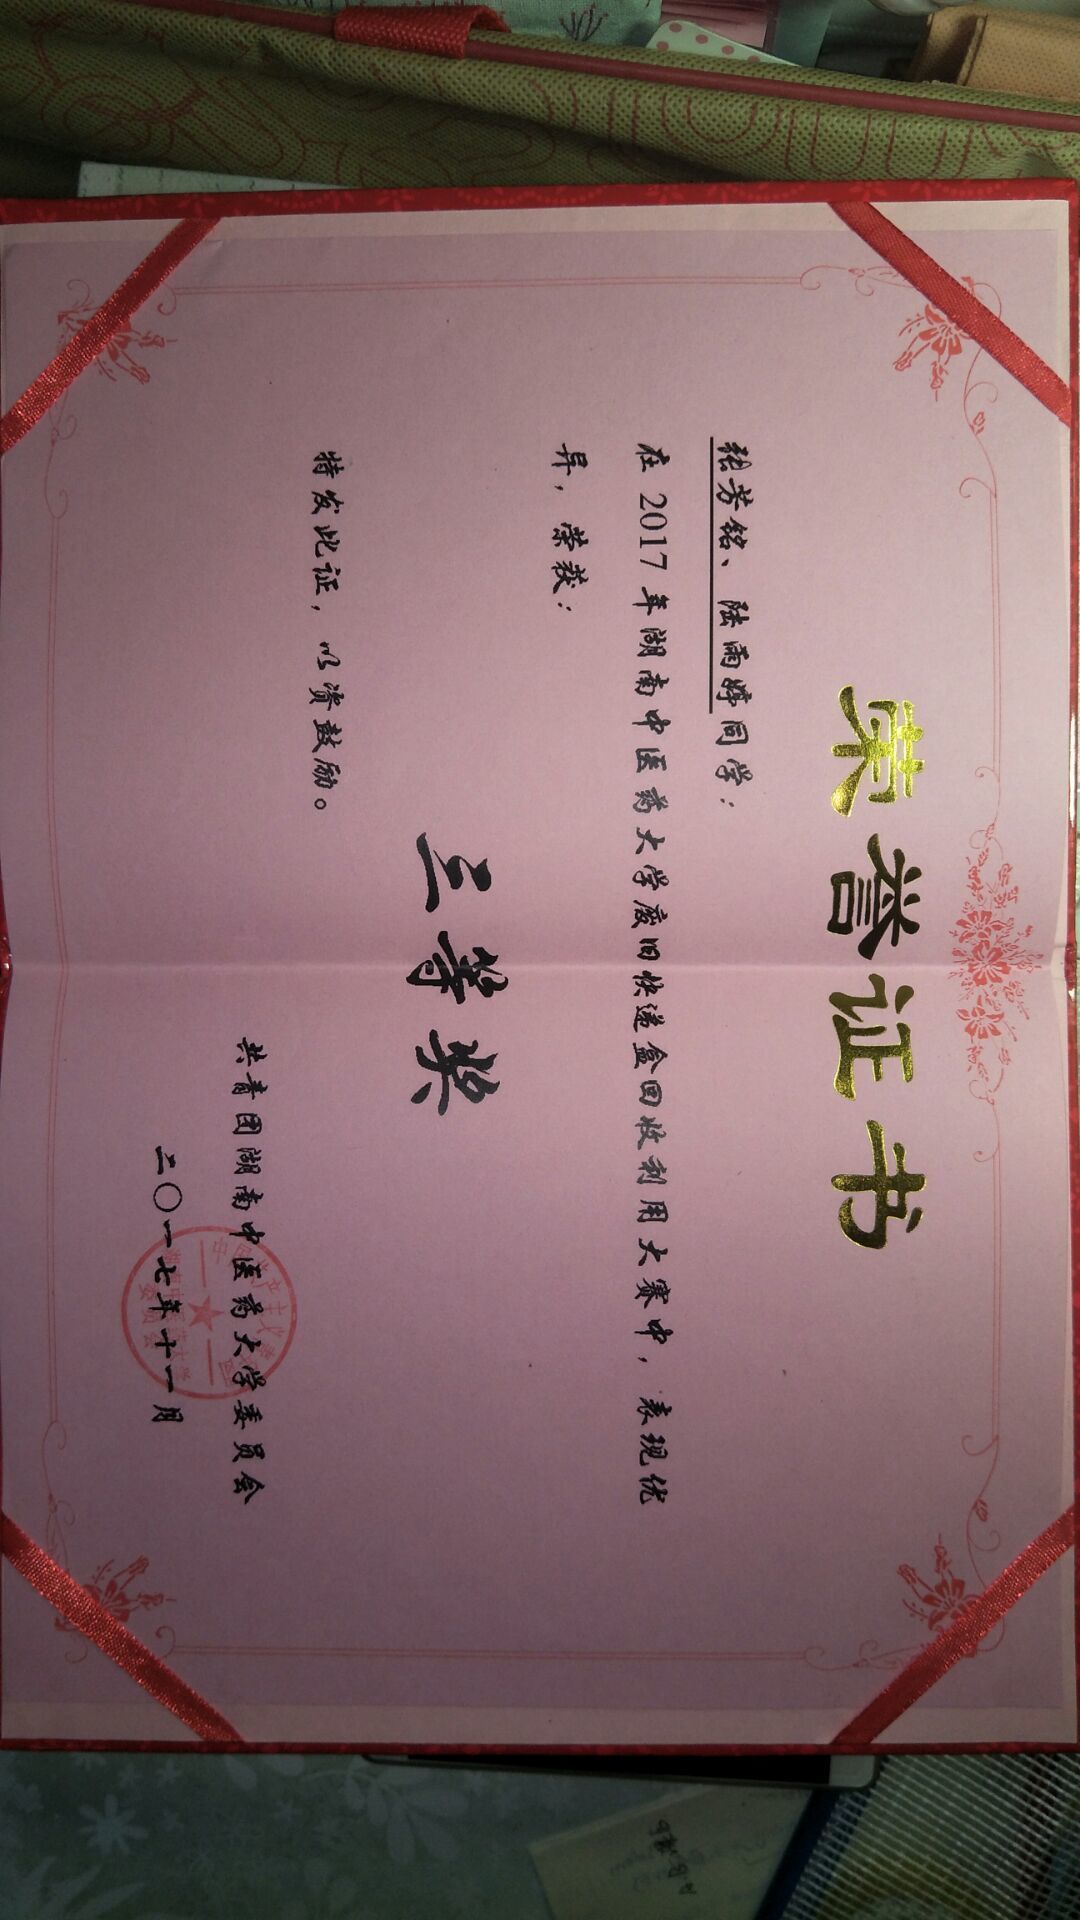 荣誉证书
张芳铭、陆雨婷同学：
在2017年湖南中医药大学废旧快递盒回收利用大赛中，表现优
异，荣获：
三等奖
特发此证，以资鼓励。
共青团湖南中医药大学委员会
二〇一七年十一月